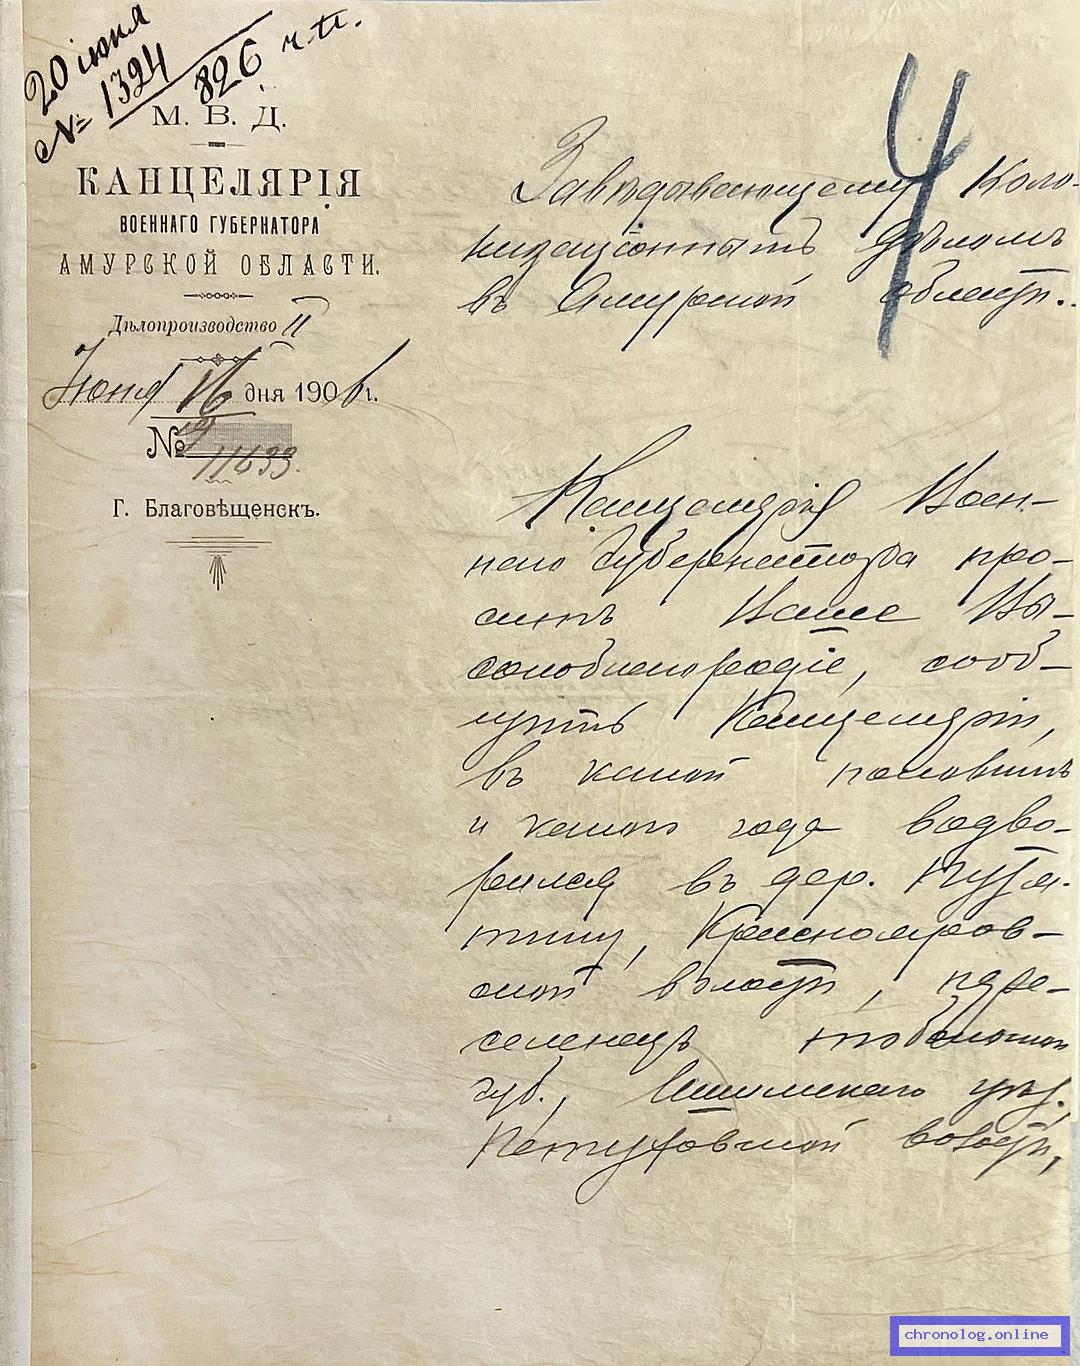 20 іюня
№ 1324
826 ч.п.
М. В. Д.
КАНЦЕЛЯРІЯ
ВОЕННАГО ГУБЕРНАТОРА
АМУРСКОЙ ОБЛАСТИ.
Дѣлопроизводство II
Іюня 16 дня 1906 г.
№ 11633.
Г. Благовѣщенскъ.
4
Завѣдывающему Коло-
низаціоннымъ дѣломъ
въ Амурской области.
Канцелярія Воен-
наго Губернатора про-
ситъ Ваше Вы-
сокоблагородіе, сооб-
щить Канцеляріи,
въ какой половинѣ
и какого года водво-
рился въ дер.
Краснояров-
ской волости, пере-
селенецъ Тобольской
губ., Ишимскаго уѣз.,
Петуховской волости,
chronolog.online